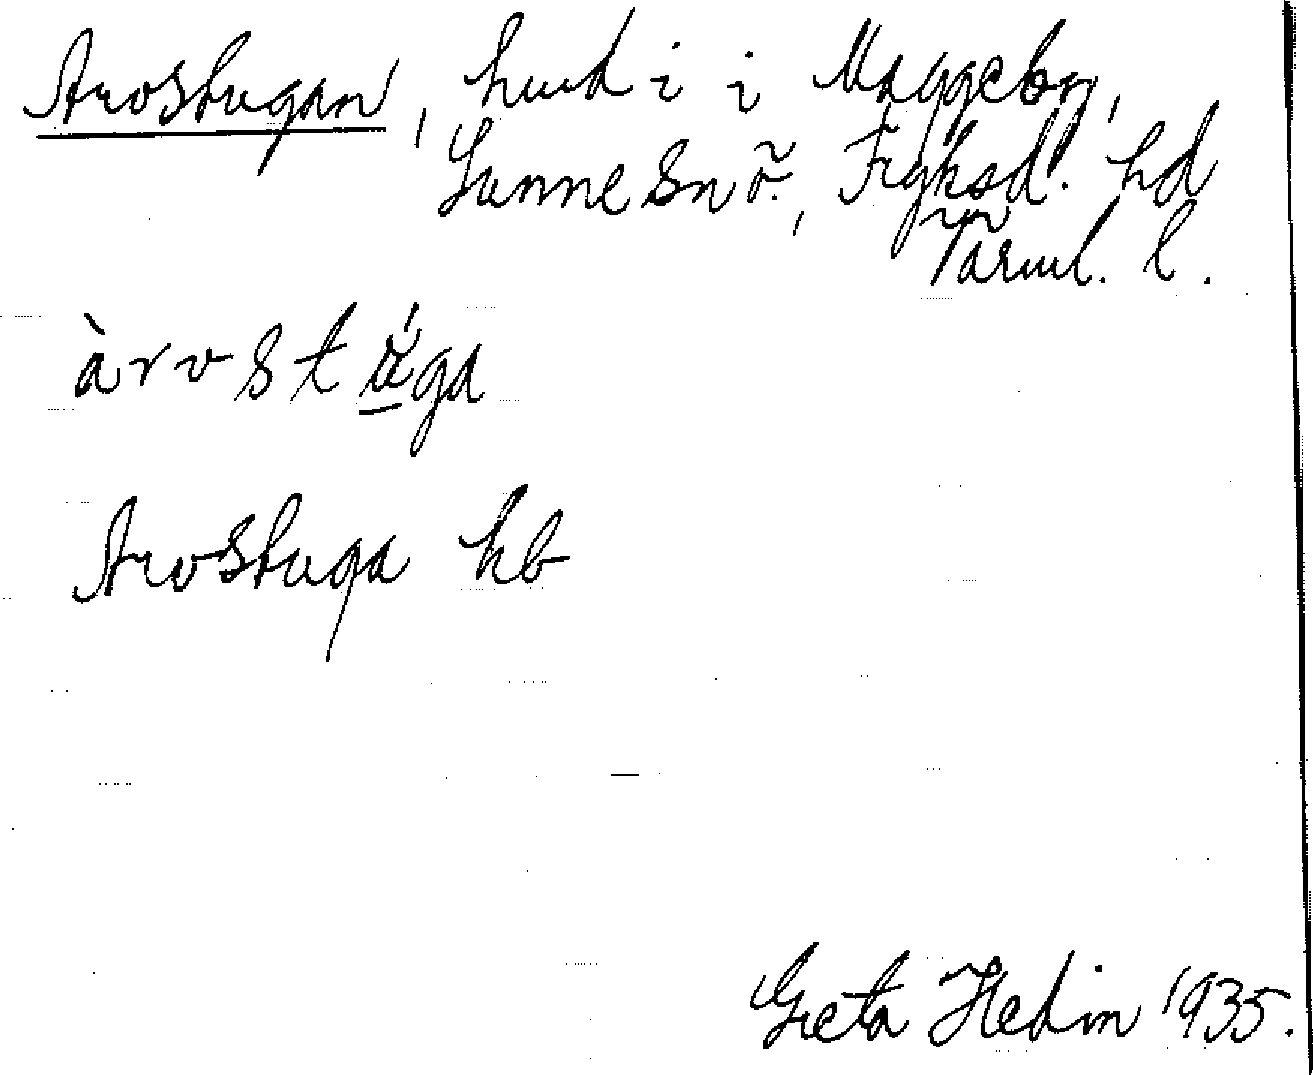 Arvstugan, hmd i i Maggeby,
Sunne sn ö., Fryksd. hd
Värml. l.
àrvstú̈ga
Arvstuga hb
Greta Hedin 1935.